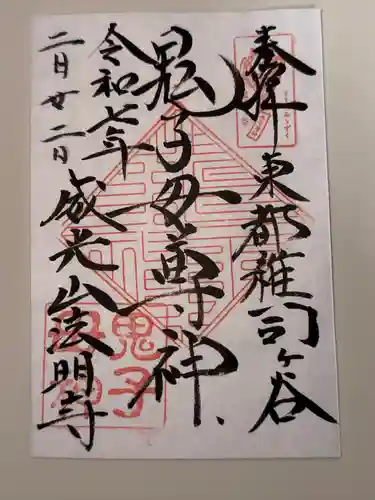 奉拝 東都雑司ヶ谷
鬼子母尊神
令和七年
二月廿二日
威光山法明寺
鬼子
母神